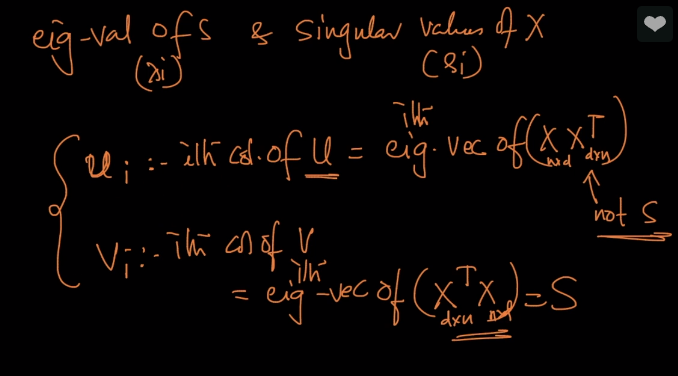 eig-val of S & singular values of X
(λi) (si)
ui :- ith col. of U = ith eig. vec of (X XT)
nxd dxn
not S
Vi :- ith col of V
= ith eig-vec of (XTX) = S
dxn nxd